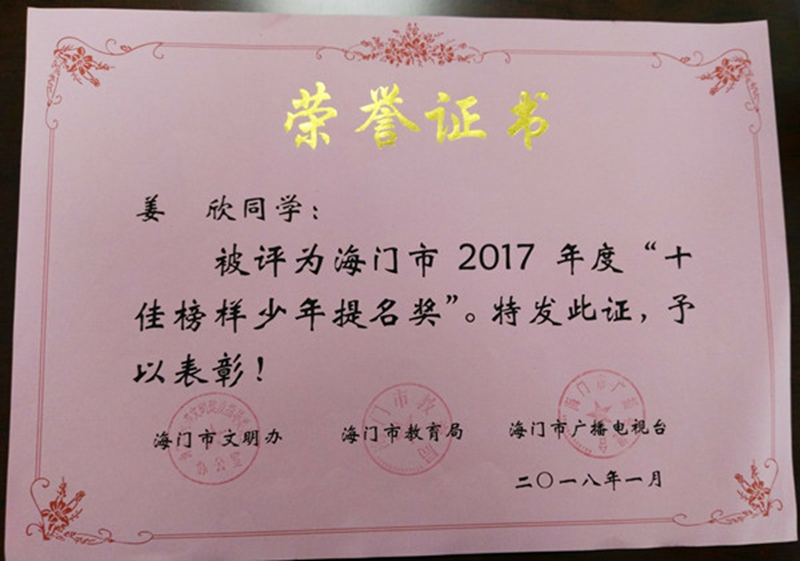 荣誉证书
姜 欣同学：
被评为海门市 2017 年度“十
佳榜样少年提名奖”。特发此证，予
以表彰！
海门市文明办 海门市教育局 海门市广播电视台
二〇一八年一月